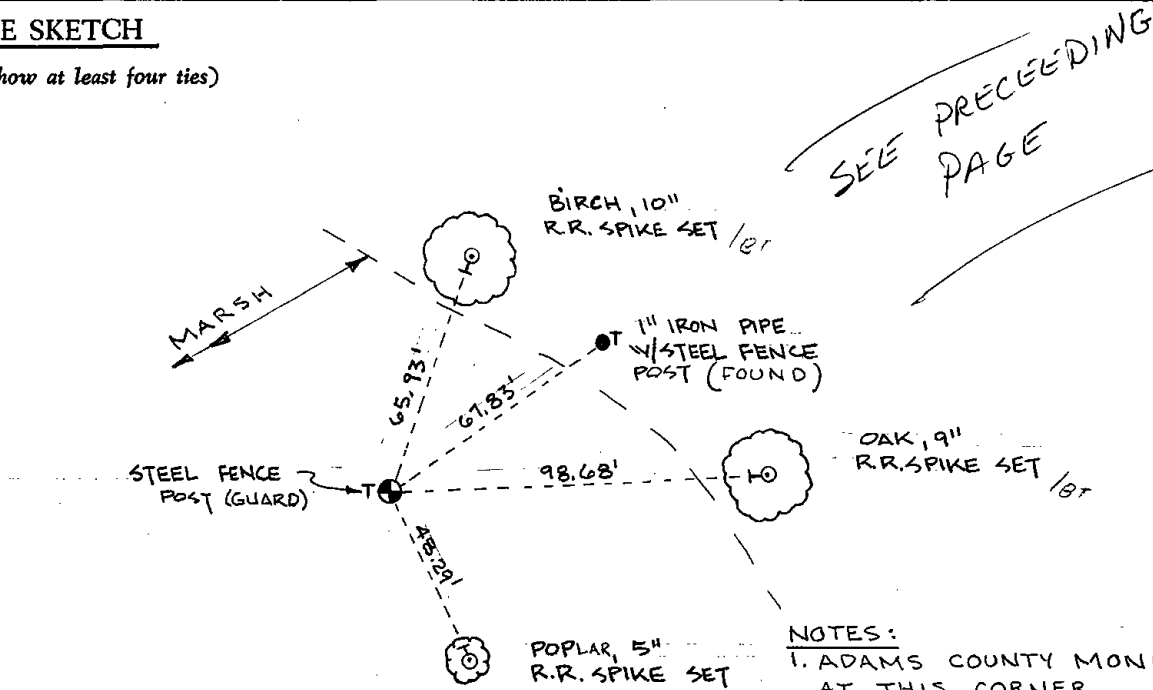 E SKETCH
how at least four ties)
SEE PRECEEDING
PAGE
BIRCH, 10"
R.R. SPIKE SET /BT
MARSH
1" IRON PIPE
W/STEEL FENCE
POST (FOUND)
T
65.93'
67.83'
OAK, 9"
R.R. SPIKE SET /BT
98.68'
STEEL FENCE
POST (GUARD)
T
48.29'
POPLAR, 5"
R.R. SPIKE SET
NOTES:
1. ADAMS COUNTY MON
AT THIS CORNER